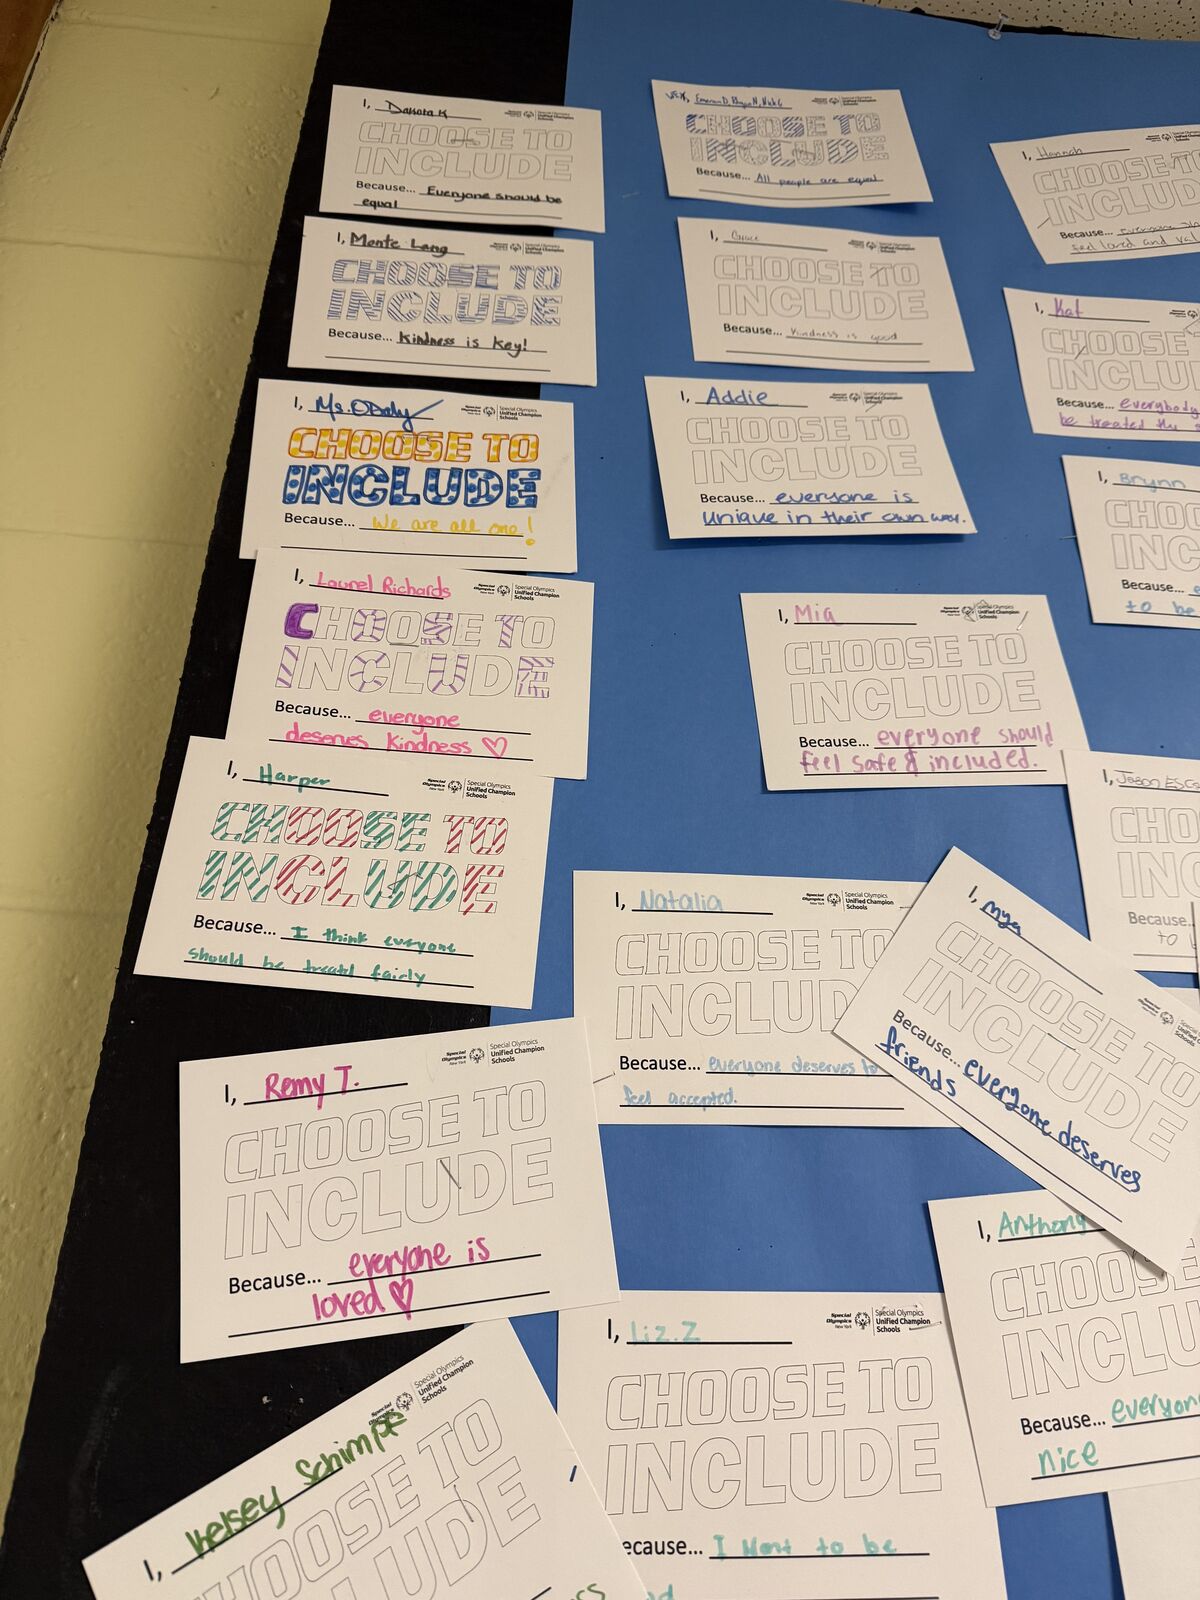 I, Dakota K
Special Olympics
Unified Champion
Schools
CHOOSE TO
INCLUDE
Because... Everyone should be
equal
I, Monte Lang
CHOOSE TO
INCLUDE
Because... Kindness is Key!
I, Ms. O'Daly
Special Olympics New York
Special Olympics
Unified Champion
Schools
CHOOSE TO
INCLUDE
Because... We are all one!
I, Laurel Richards
Special Olympics New York
Special Olympics
Unified Champion
Schools
CHOOSE TO
INCLUDE
Because... everyone
deserves kindness ♡
I, Harper
Special Olympics New York
Special Olympics
Unified Champion
Schools
CHOOSE TO
INCLUDE
Because... I think everyone
should be treatd fairly
I, Remy T.
Special Olympics New York
Special Olympics
Unified Champion
Schools
CHOOSE TO
INCLUDE
Because... everyone is
loved ♡
I, Kelsey Schimpf
Special Olympics New York
Special Olympics
Unified Champion
Schools
CHOOSE TO
INCLUDE
CHOOSE TO
INCLUDE
Because... All people are equal
I, Grace
CHOOSE TO
INCLUDE
Because... Kindness is good
I, Addie
CHOOSE TO
INCLUDE
Because... everyone is
unique in their own way.
I, Mia
CHOOSE TO
INCLUDE
Because... everyone should
feel safe & included.
I, Natalia
Special Olympics New York
Special Olympics
Unified Champion
Schools
CHOOSE TO
INCLU
Because... everyone deserves to
feel accepted.
I, Mya
CHOOSE TO
INCLUDE
Because... everyone deserves
friends
I, Liz.Z
Special Olympics New York
Special Olympics
Unified Champion
Schools
CHOOSE TO
INCLUDE
ecause... I want to be
I, Hannah
CHOOSE TO
INCLUDE
Because... everyone
feel loved and val
I, Kat
CHOOSE
INCLU
Because... everybody
be treated the s
I, Brynn
CHOO
INC
Because...
to be
I, Jason
CHO
INC
Because.
to
I, Anthony
CHOOSE
INCLU
Because... everyon
nice